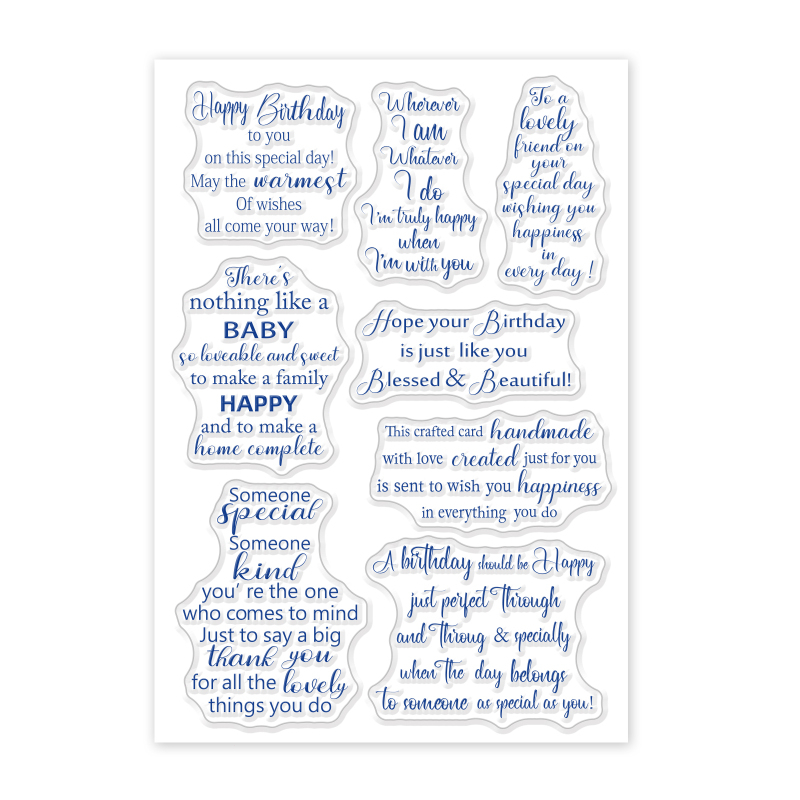 Happy Birthday
to you
on this special day!
May the warmest
Of wishes
all come your way!
Wherever
I am
Whatever
I do
I'm truly happy
when
I'm with you
To a
lovely
friend on
your
special day
wishing you
happiness
in
every day !
There's
nothing like a
BABY
so loveable and sweet
to make a family
HAPPY
and to make a
home complete
Hope your Birthday
is just like you
Blessed & Beautiful!
This crafted card handmade
with love created just for you
is sent to wish you happiness
in everything you do
Someone
special
Someone
kind
you' re the one
who comes to mind
Just to say a big
thank you
for all the lovely
things you do
A birthday should be Happy
just perfect Through
and Throug & specially
when The day belongs
to someone as special as you!